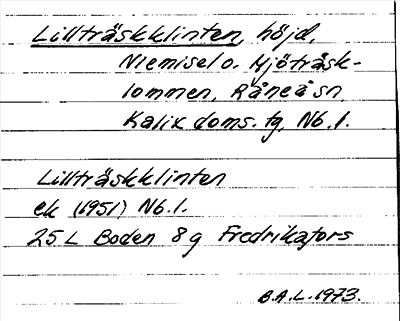 Lillträskklinten, höjd,
Niemisel o. Mjöträsk-
lommen, Råneå sn,
Kalix doms. tg, Nb. l.
Lillträskklinten
ek (1951) Nb. l.
25 L Boden 8 g Fredrikafors
B.A.L. 1973.